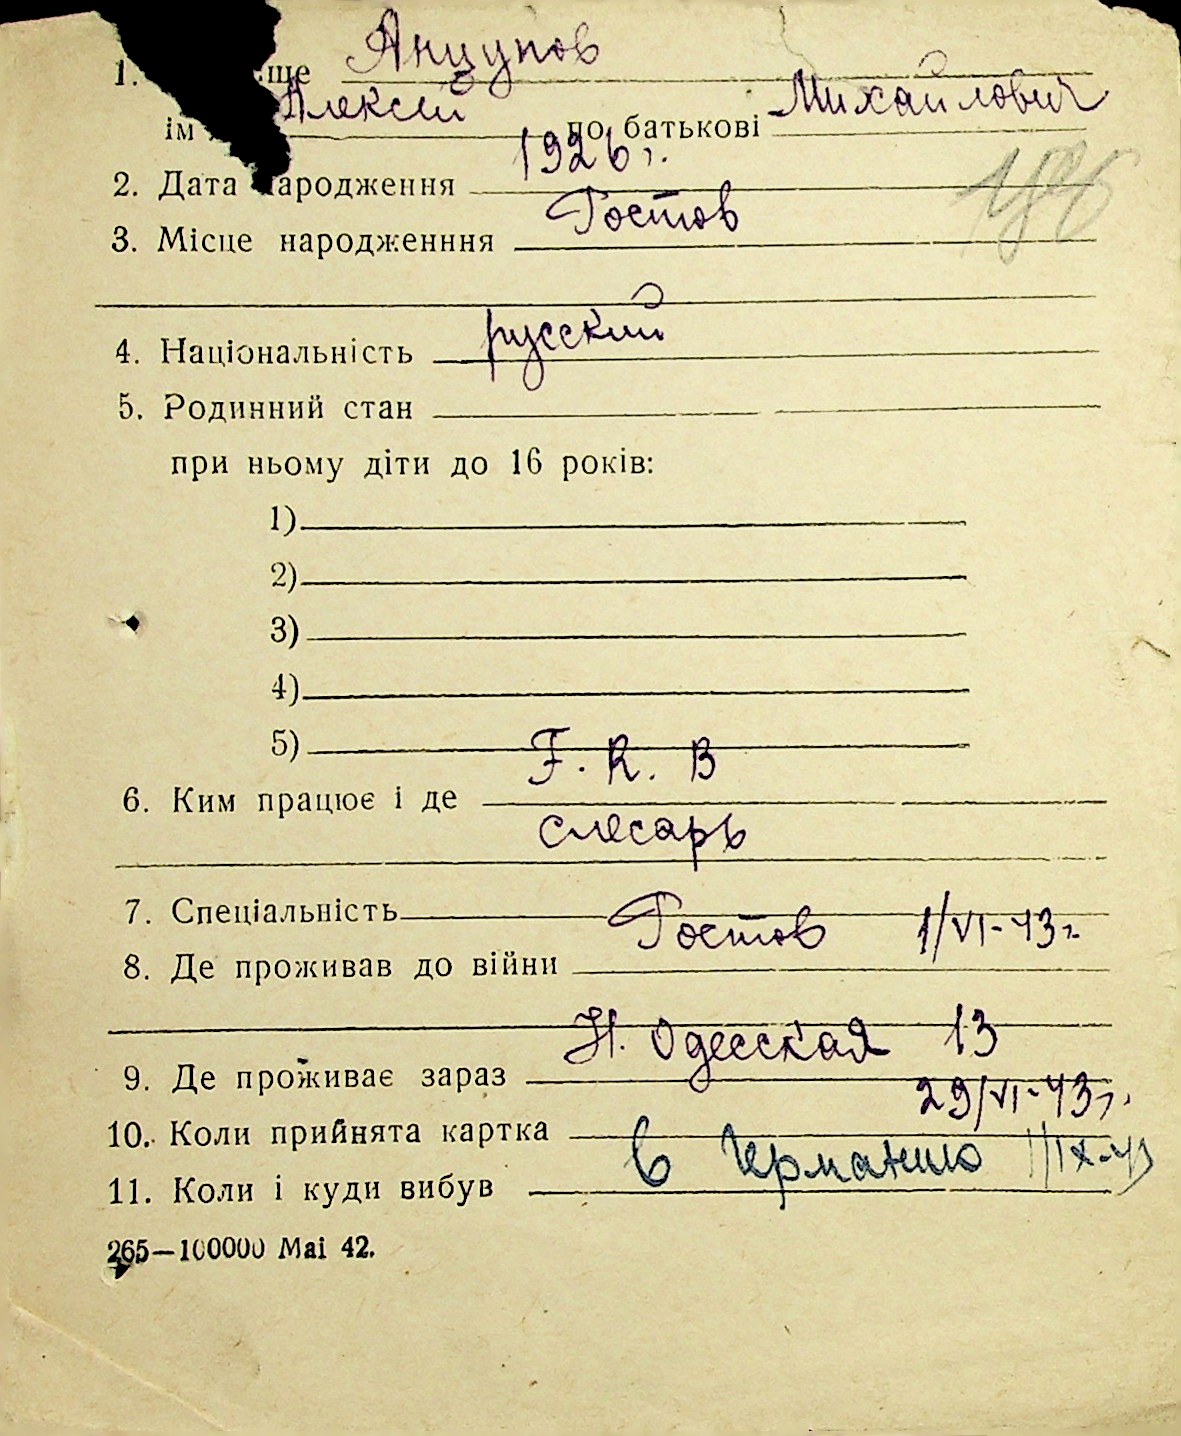 1. ще Анцупов
ім Алексей по батькові Михайлович
2. Дата народження 1926 г.
3. Місце народженння Ростов
4. Національність русский
5. Родинний стан
при ньому діти до 16 років:
1)
2)
3)
4)
5)
6. Ким працює і де F. R. B
слесарь
7. Спеціальність
8. Де проживав до війни Ростов 1/VI-43г.
9. Де проживає зараз Н. Одесская 13
10. Коли прийнята картка 29/VI-43г.
11. Коли і куди вибув в Германию 1/IX-43
265—100000 Mai 42.